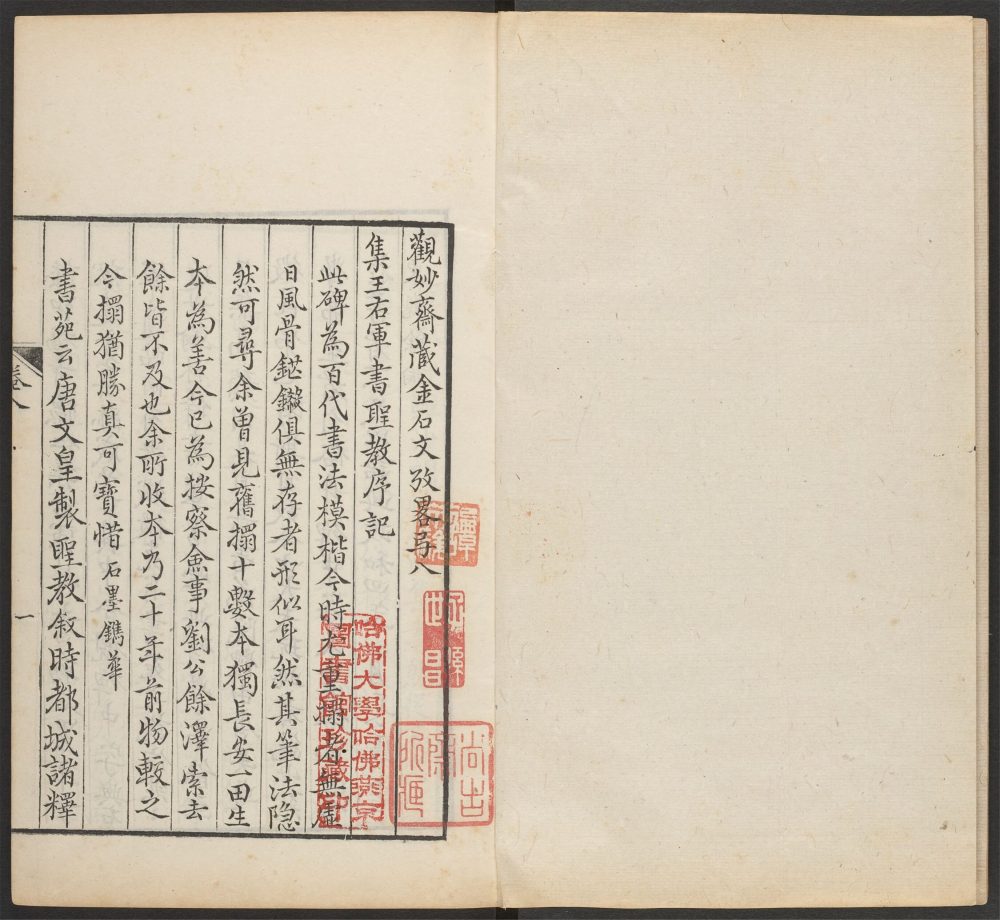 觀妙齋藏金石文攷畧弓八
集王右軍書聖教序記
此碑為百代書法模楷今時尤重搨者無虛
日風骨鋩鎩俱無存者形似耳然其筆法隐
然可尋余曽見舊搨十數本獨長安一田生
本為善今已為按察僉事劉公餘澤索去
餘皆不及也余所收本乃二十年前物較之
今搨猶勝真可寶惜 石墨鐫華
書苑云唐文皇製聖教叙時都城諸釋
卷八
一
哈佛大學哈佛燕京
圖書館珍藏印